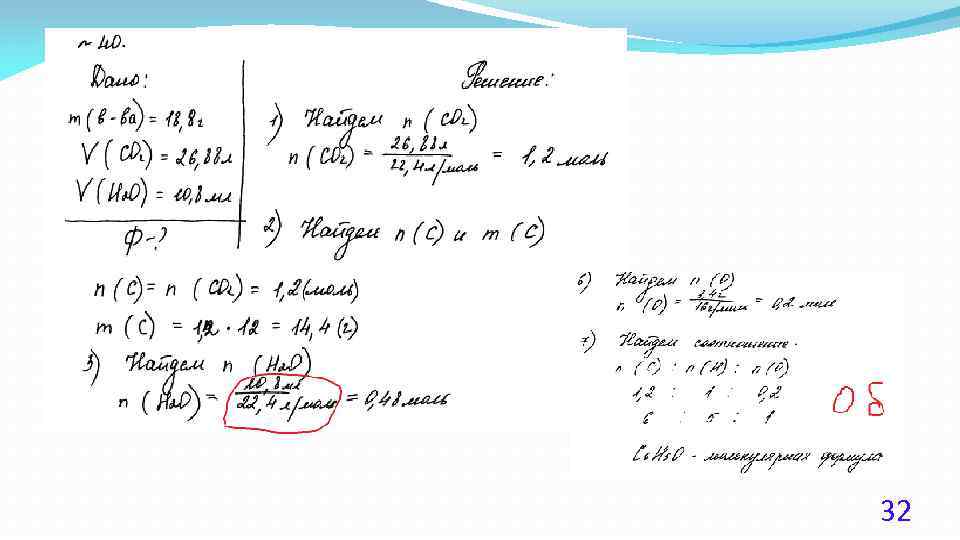 ~ 40.
Дано:
m(в-ва) = 18,8г
V(CO₂) = 26,88л
V(H₂O) = 10,8мл
Ф-?
Решение:
1) Найдем n(CO₂)
n(CO₂) = 26,88л / 22,4л/моль = 1,2 моль
2) Найдем n(C) и m(C)
n(C) = n(CO₂) = 1,2(моль)
m(C) = 1,2 · 12 = 14,4(г)
3) Найдем n(H₂O)
n(H₂O) = 10,8мл / 22,4л/моль = 0,48моль
6) Найдем n(O)
n(O) = 3,4г / 16г/моль = 0,2 моль
7) Найдем соотношение.
n(C) : n(H) : n(O)
1,2 : 1 : 0,2
6 : 5 : 1
C₆H₅O - молекулярная формула
ОБ
32